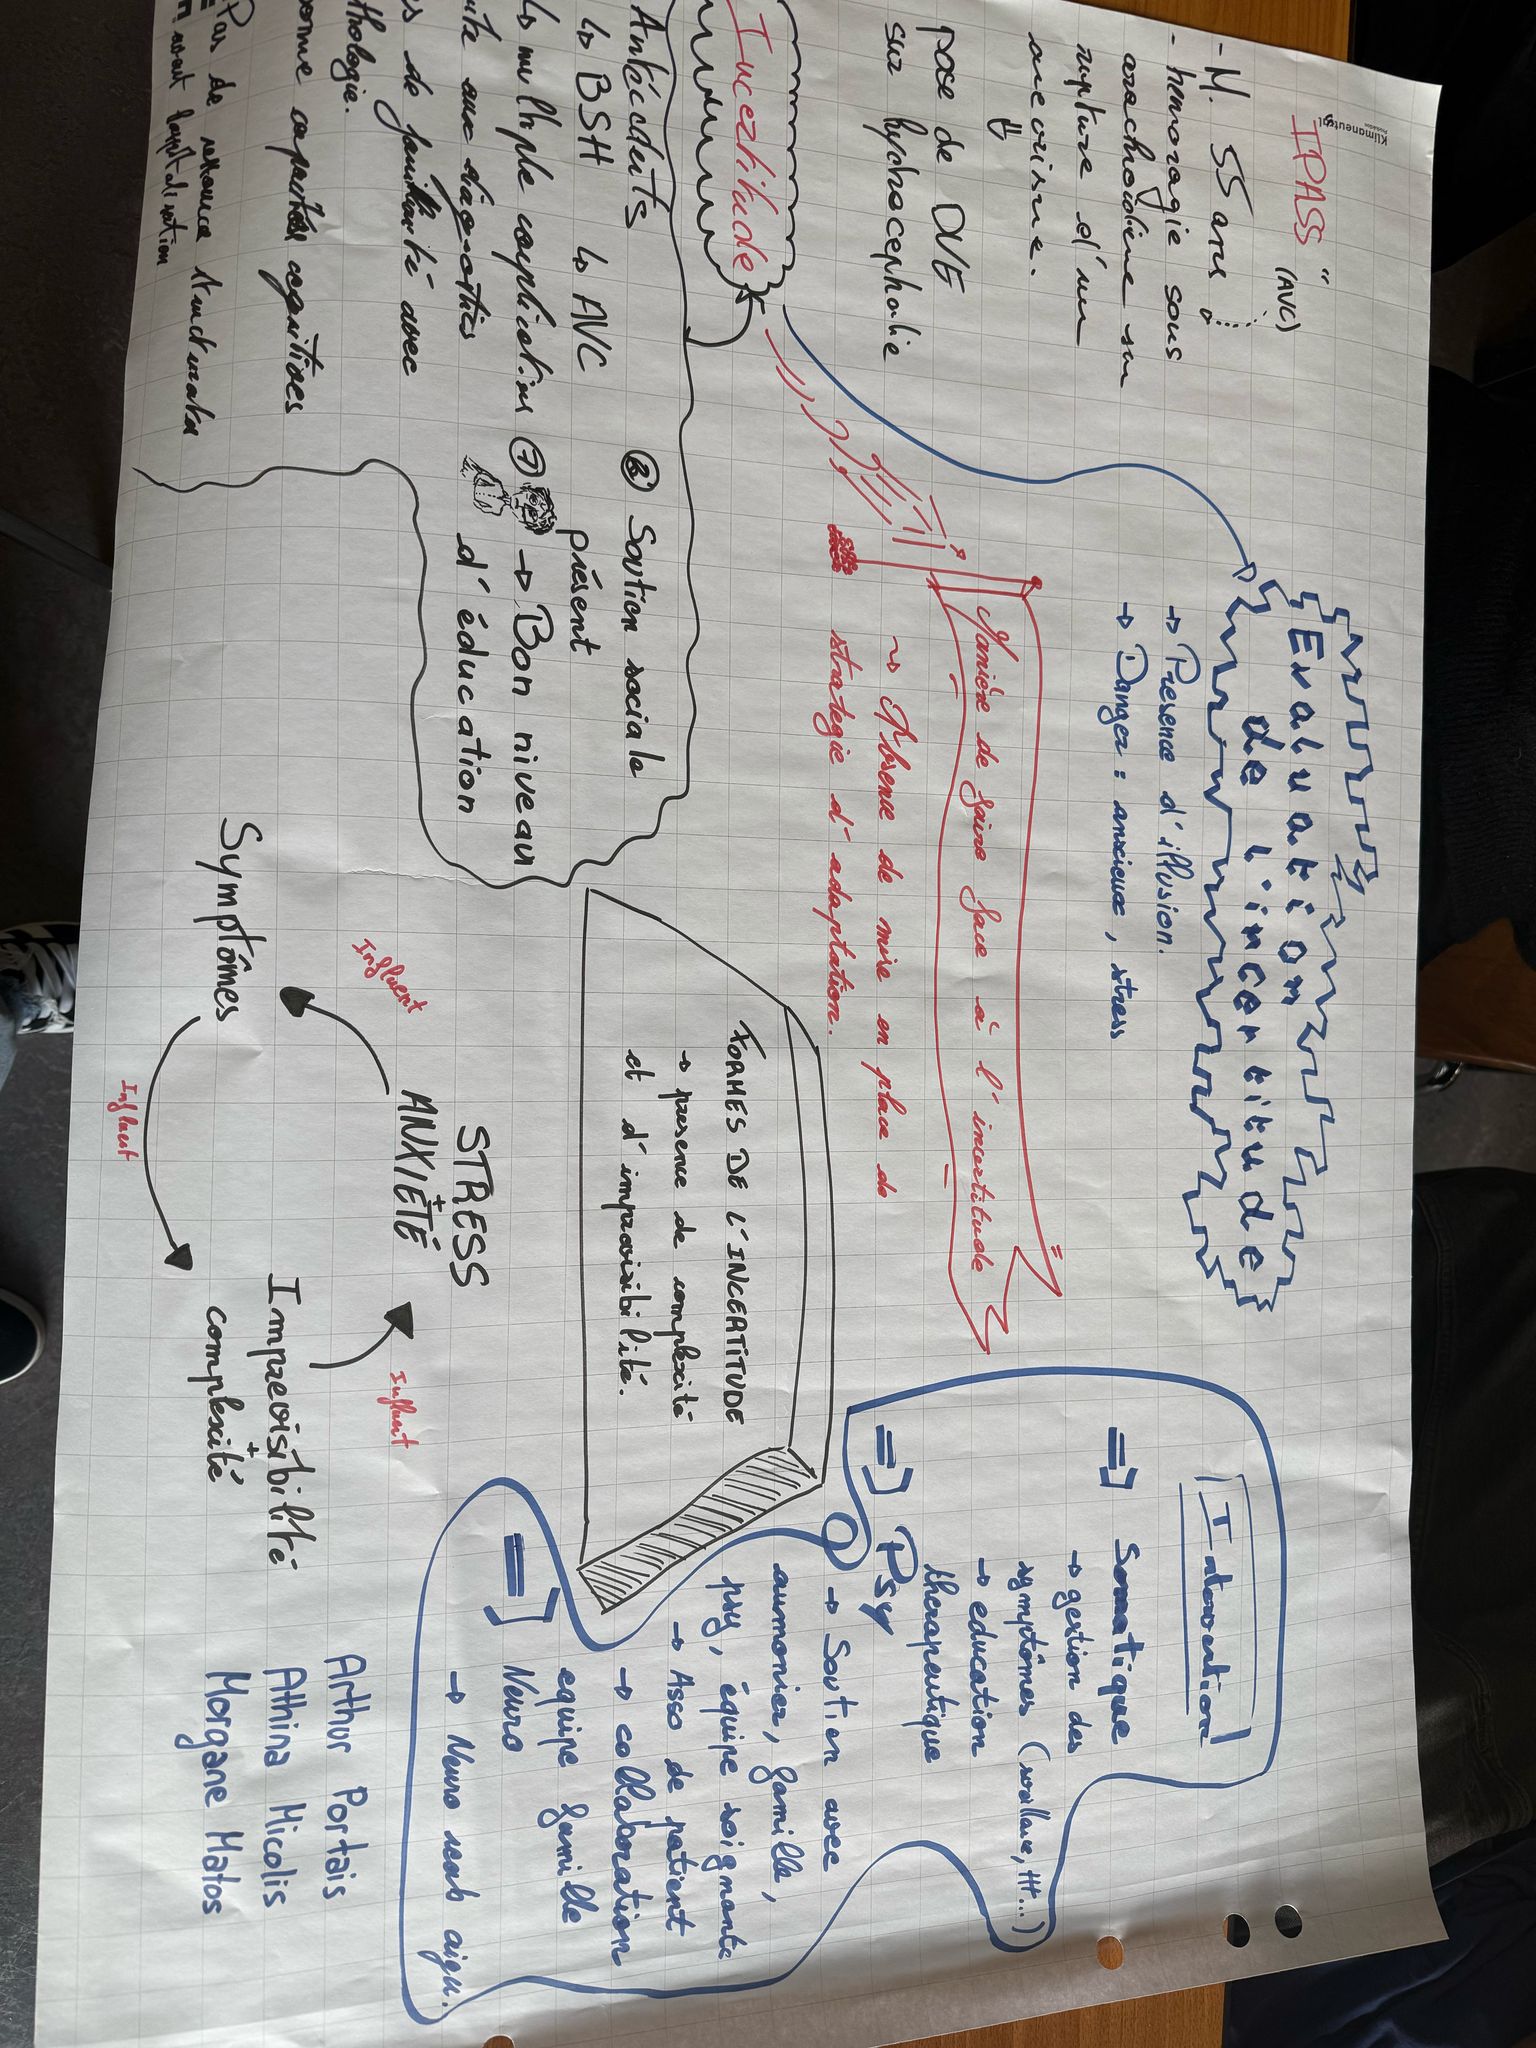 Klimaneutral
"IPASS"
(AVC)
- M. 55 ans
- hemoragie sous
arachnoïdine sur
rupture d'un
anevrisme.
pose de DVE
sur hydrocephalie
Incertitude
Antécédents
↳ BSH ↳ AVC
↳ multiple complications
de familiarité avec
thologie.
cognitives
Pas de
avant hospitalisation
② Soutien sociale
présent
⑦ → Bon niveau
d'éducation
Evaluation
de l'incertitude
→ Presence d'illusion.
→ Danger : anxieux, stress
Manière de faire face à l'incertitude
~> Absence de mise en place de
strategie d'adaptation.
FORMES DE L'INCERTITUDE
→ presence de complexité
et d'imprévisibilité.
STRESS
+
ANXIÉTÉ
Influent
Symptômes
Influent
Imprevisibilité
+
complexité
Influent
Intervention
=> Somatique
→ gestion des
symptômes (
→ education
therapeutique
=> Psy
→ Soutien avec
aumonier, famille,
psy, équipe soignante
→ Asso de patient
→ collaboration
equipe famille
=> Neuro
→ Neuro reab aigu.
Arthur Portais
Athina Micolis
Morgane Matos